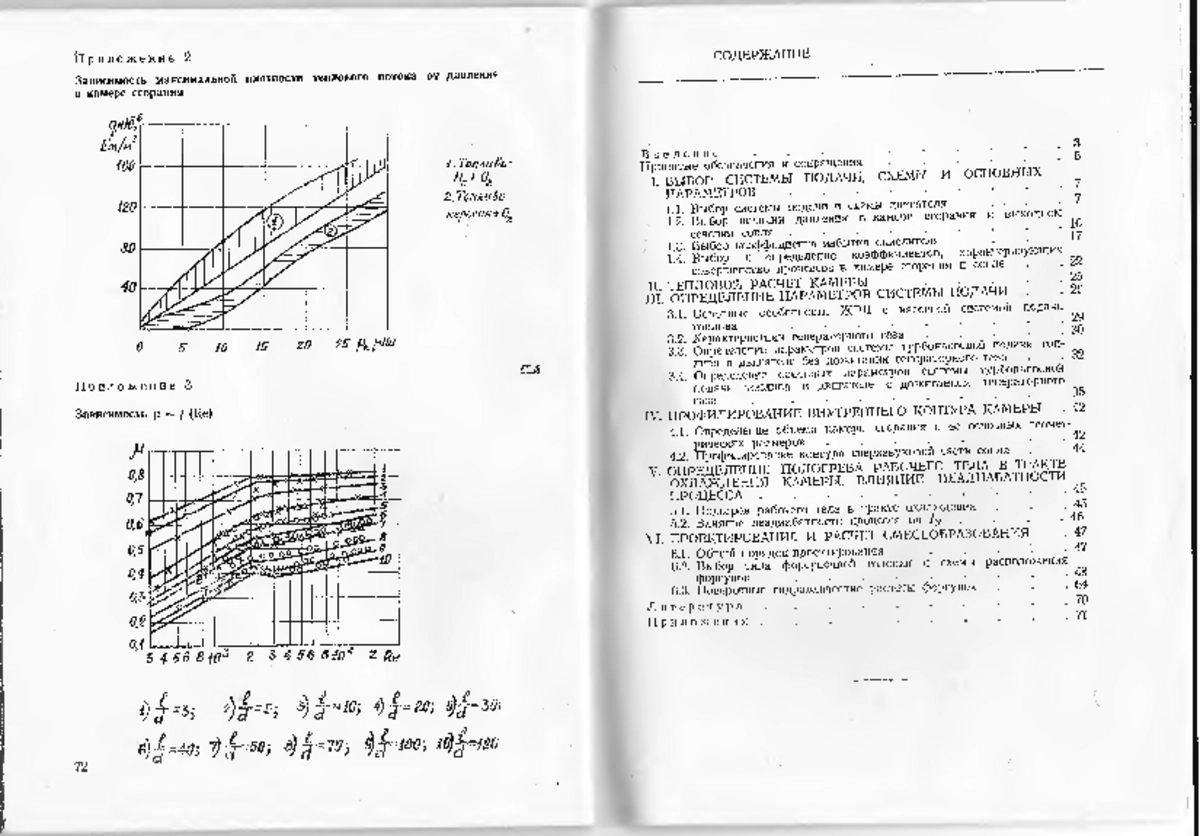 Приложение 2
Зависимость максимальной плотности теплового потока от давления
в камере сгорания
160
120
80
40
0 5 10 15 20 25
1. Топливо-
H₂ + O₂
2. Топливо
керосин + O₂
1
2
Приложение 3
Зависимость μ = f (Re)
μ
0,8
0,7
0,6
0,5
0,4
0,3
0,2
0,1
8
9
10
3 4 5 6 8 10³ 2 3 4 5 6 8 10⁴ 2 Re
1) l/d=3; 2) l/d=5; 3) l/d=10; 4) l/d=20; 5) l/d=30;
6) l/d=40; 7) l/d=50; 8) l/d=70; 9) l/d=100; 10) l/d=120
72
СОДЕРЖАНИЕ
Введение 3
Принятые обозначения и сокращения
I. ВЫБОР СИСТЕМЫ ПОДАЧИ, СХЕМЫ И ОСНОВНЫХ
ПАРАМЕТРОВ 7
1.1. Выбор системы подачи и схемы двигателя 7
1.2. Выбор давления в камере сгорания и выходном
сечении сопла
1.3. Выбор коэффициента избытка окислителя 17
1.4. Выбор и определение коэффициентов, характеризующих
совершенство процессов в камере сгорания и сопле 22
II. ТЕПЛОВОЙ РАСЧЕТ КАМЕРЫ
III. ОПРЕДЕЛЕНИЕ ПАРАМЕТРОВ СИСТЕМЫ ПОДАЧИ
3.1. Основные особенности ЖРД с насосной системой подачи
топлива 29
3.2. Характеристики генераторного газа 30
3.3. Определение параметров системы турбонасосной подачи топ-
лива в двигателе без дожигания генераторного газа 32
3.4. Определение параметров системы турбонасосной
подачи топлива в двигателе с дожиганием генераторного
газа 35
IV. ПРОФИЛИРОВАНИЕ ВНУТРЕННЕГО КОНТУРА КАМЕРЫ 42
4.1. Определение объема камеры сгорания и ее основных геомет-
рических размеров 42
4.2. Профилирование контура сверхзвуковой части сопла 44
V. ОПРЕДЕЛЕНИЕ ПОДОГРЕВА РАБОЧЕГО ТЕЛА В ТРАКТЕ
ОХЛАЖДЕНИЯ КАМЕРЫ. ВЛИЯНИЕ НЕАДИАБАТНОСТИ
ПРОЦЕССА 45
5.1. Подогрев рабочего тела в тракте охлаждения 45
5.2. Влияние неадиабатности процесса на 46
VI. ПРОЕКТИРОВАНИЕ И РАСЧЕТ СМЕСЕОБРАЗОВАНИЯ 47
6.1. Общий порядок проектирования 47
6.2. Выбор типа форсуночной головки и схемы расположения
форсунок
6.3. Поверочные гидравлические расчеты форсунок 64
Литература 70
Приложения 71